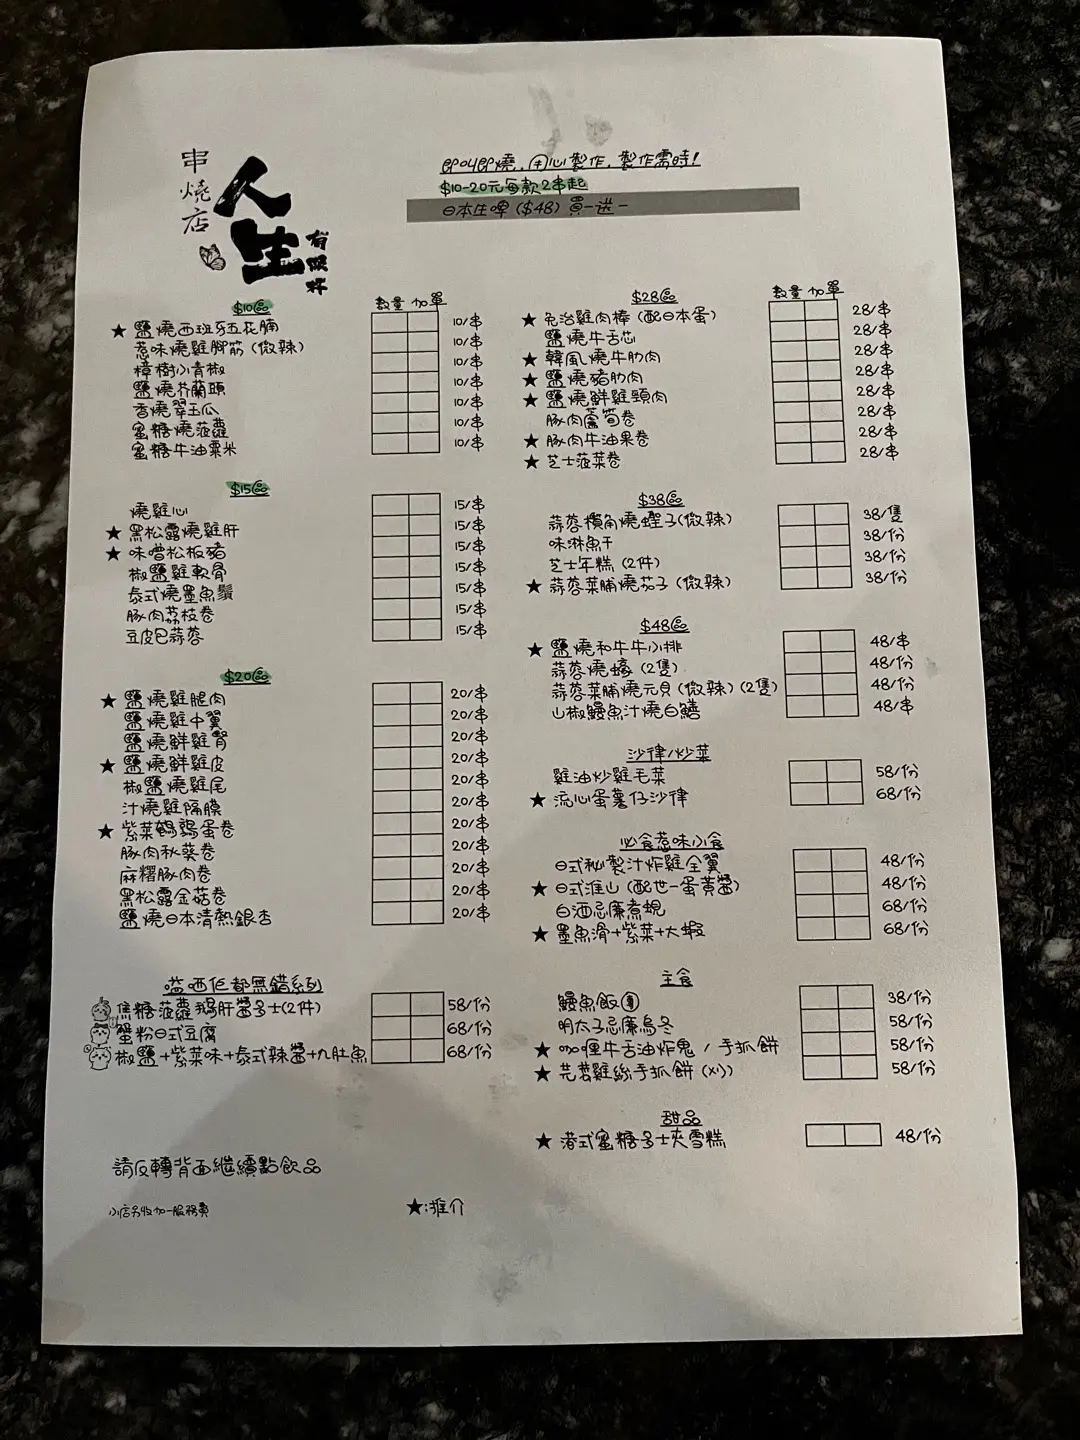 串燒店
人生
有限杯
即叫即燒，用心製作，製作需時！
$10-20元每款2串起
日本生啤 ($48) 買一送一
$10區
數量 加單
★ 鹽燒西班牙五花腩 10/串
惹味燒雞腳筋 (微辣) 10/串
樟樹小青椒 10/串
鹽燒芥蘭頭 10/串
香燒翠玉瓜 10/串
蜜糖燒菠蘿 10/串
蜜糖牛油粟米 10/串
$15區
燒雞心 15/串
★ 黑松露燒雞肝 15/串
★ 味噌松板豬 15/串
椒鹽雞軟骨 15/串
泰式燒墨魚鬚 15/串
豚肉荔枝卷 15/串
豆皮巴蒜蓉 15/串
$20區
★ 鹽燒雞腿肉 20/串
鹽燒雞中翼 20/串
鹽燒鮮雞腎 20/串
★ 鹽燒鮮雞皮 20/串
椒鹽燒雞尾 20/串
汁燒雞隔膜 20/串
★ 紫菜鵪鶉蛋卷 20/串
豚肉秋葵卷 20/串
麻糬豚肉卷 20/串
黑松露金菇卷 20/串
鹽燒日本清熱銀杏 20/串
嗌哂佢都無錯系列
焦糖菠蘿鵝肝醬多士(2件) 58/份
蟹粉日式豆腐 68/份
椒鹽+紫菜味+泰式辣醬+九肚魚 68/份
請反轉背面繼續點飲品
小店另收加一服務費
★:推介
$28區
數量 加單
★ 免治雞肉棒 (配日本蛋) 28/串
鹽燒牛舌芯 28/串
★ 韓風燒牛肋肉 28/串
★ 鹽燒豬肋肉 28/串
★ 鹽燒鮮雞頸肉 28/串
豚肉蘆筍卷 28/串
★ 豚肉牛油果卷 28/串
★ 芝士菠菜卷 28/串
$38區
蒜蓉欖角燒蟶子(微辣) 38/隻
味淋魚干 38/份
芝士年糕 (2件) 38/份
★ 蒜蓉菜脯燒茄子 (微辣) 38/份
$48區
★ 鹽燒和牛牛小排 48/串
蒜蓉燒蠔 (2隻) 48/份
蒜蓉菜脯燒元貝 (微辣) (2隻) 48/份
山椒鰻魚汁燒白鱔 48/串
沙律/炒菜
雞油炒雞毛菜 58/份
★ 流心蛋薯仔沙律 68/份
必食惹味小食
日式秘製汁炸雞全翼 48/份
★ 日式淮山 (配世一蛋黃醬) 48/份
白酒忌廉煮蜆 68/份
★ 墨魚滑+紫菜+大蝦 68/份
主食
鰻魚飯 38/份
明太子忌廉烏冬 58/份
★ 咖喱牛舌油炸鬼 / 手抓餅 58/份
★ 芫荽雞絲手抓餅 (凍) 58/份
甜品
★ 港式蜜糖多士夾雪糕 48/份